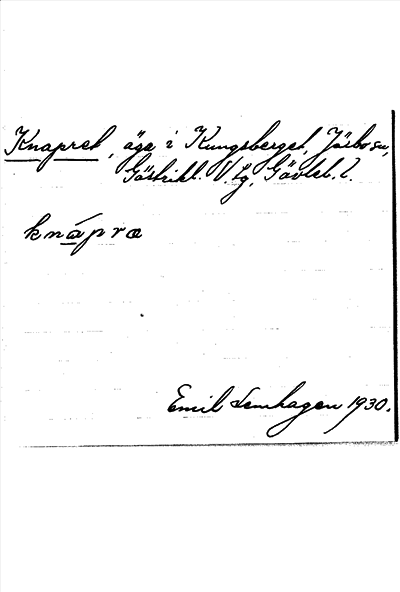 Knapret, äga i Kungsberget, Järbo sn,
Gästrikl. V. tg, Gävleb. l.
knápræ
Emil Lenhagen 1930.